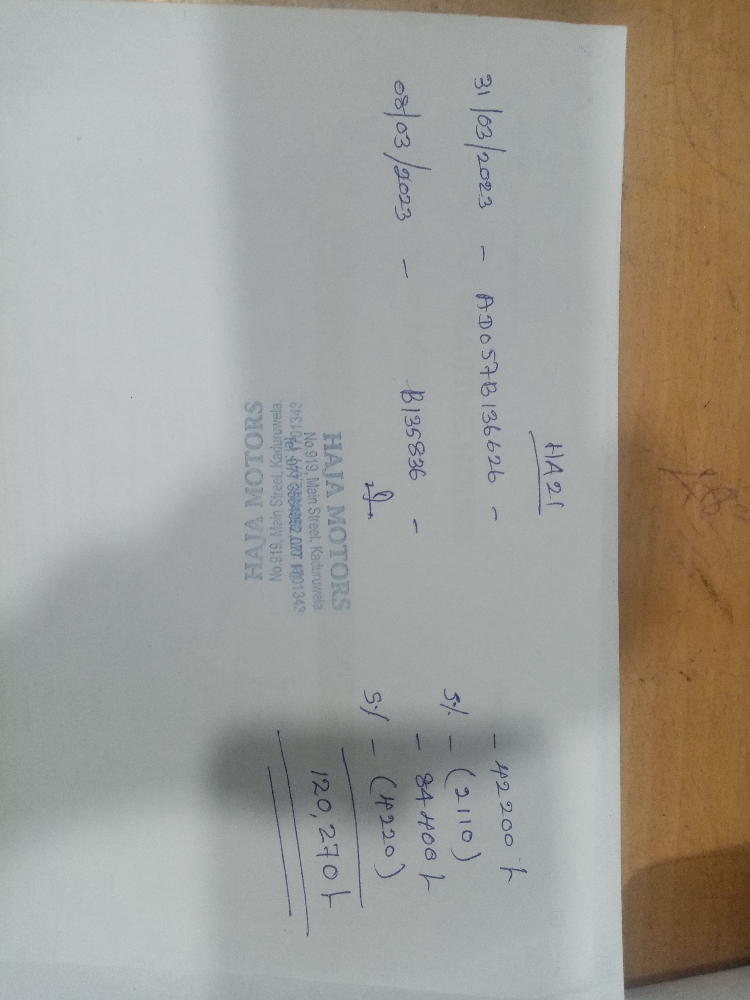 HA21
31/03/2023 - AD057B136626 - - 42200/-
5% - (2110)
08/03/2023 - B135836 - - 84400/-
5% - (4220)
120,270/-
HAJA MOTORS
No.919, Main Street, Kaduruwela
HAJA MOTORS
No.919, Main Street, Kaduruwela.